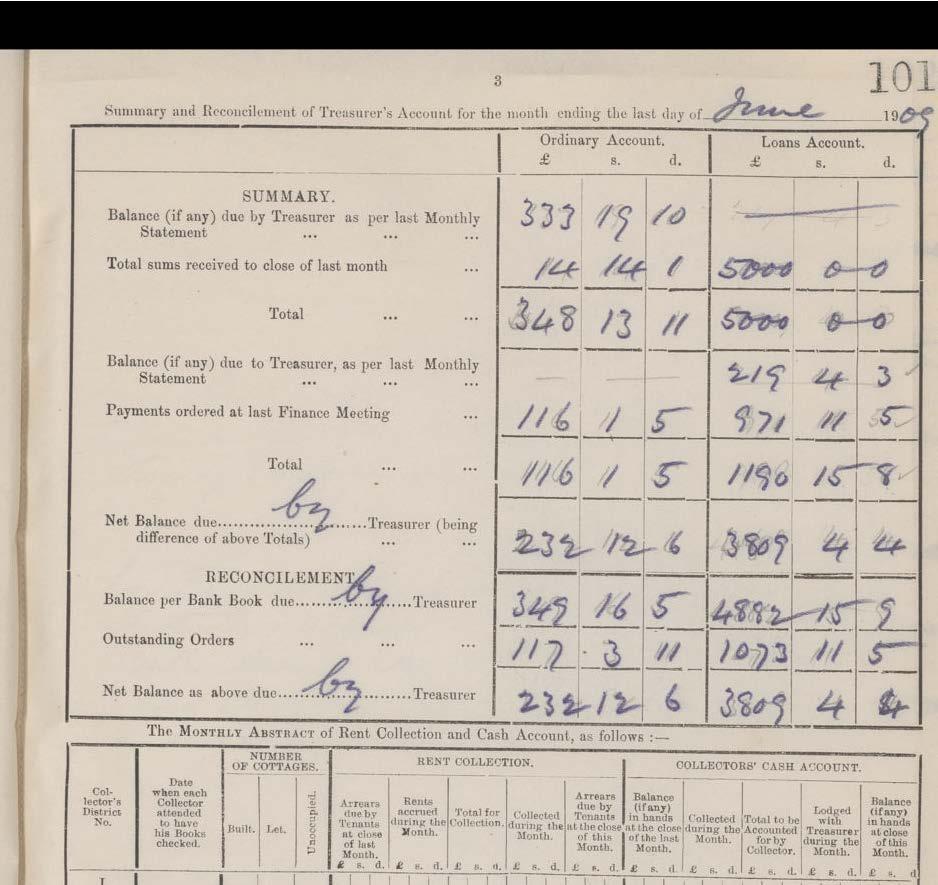 3
101
Summary and Reconcilement of Treasurer's Account for the month ending the last day of June 1909
Ordinary Account. Loans Account.
£ s. d. £ s. d.
SUMMARY.
Balance (if any) due by Treasurer as per last Monthly
Statement ... ... ... 333 19 10 —
Total sums received to close of last month ... 14 14 1 5000 0 0
Total ... ... 348 13 11 5000 0 0
Balance (if any) due to Treasurer, as per last Monthly
Statement ... ... ... — — 219 4 3
Payments ordered at last Finance Meeting ... 116 1 5 971 11 5
Total ... ... 116 1 5 1190 15 8
Net Balance due by Treasurer (being
difference of above Totals) ... ... 232 12 6 3809 4 4
RECONCILEMENT
Balance per Bank Book due by Treasurer 349 16 5 4882 15 9
Outstanding Orders ... ... ... 117 3 11 1073 11 5
Net Balance as above due by Treasurer 232 12 6 3809 4 4
The MONTHLY ABSTRACT of Rent Collection and Cash Account, as follows :—
Collector's District No.
Date when each Collector attended to have his Books checked.
NUMBER OF COTTAGES.
Built. Let. Unoccupied.
RENT COLLECTION.
Arrears due by Tenants at close of last Month.
Rents accrued during the Month.
Total for Collection.
Collected during the Month.
Arrears due by Tenants at the close of this Month.
COLLECTORS' CASH ACCOUNT.
Balance (if any) in hands at the close of the last Month.
Collected during the Month.
Total to be Accounted for by Collector.
Lodged with Treasurer during the Month.
Balance (if any) in hands at close of this Month.
£ s. d. £ s. d. £ s. d. £ s. d. £ s. d. £ s. d. £ s. d. £ s. d. £ s. d. £ s. d